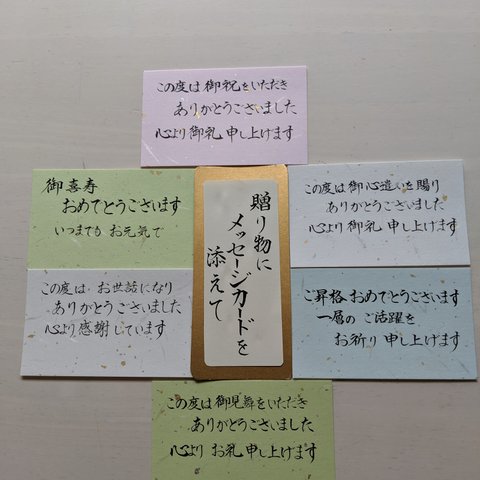 この度は御祝をいただき
ありがとうございました
心より御礼申し上げます
御喜寿
おめでとうございます
いつまでもお元気で
贈り物に
メッセージカードを
添えて
この度は御心遣いを賜り
ありがとうございました
心より御礼申し上げます
この度はお世話になり
ありがとうございました
心より感謝しています
ご昇格おめでとうございます
一層のご活躍を
お祈り申し上げます
この度は御見舞をいただき
ありがとうございました
心よりお礼申し上げます